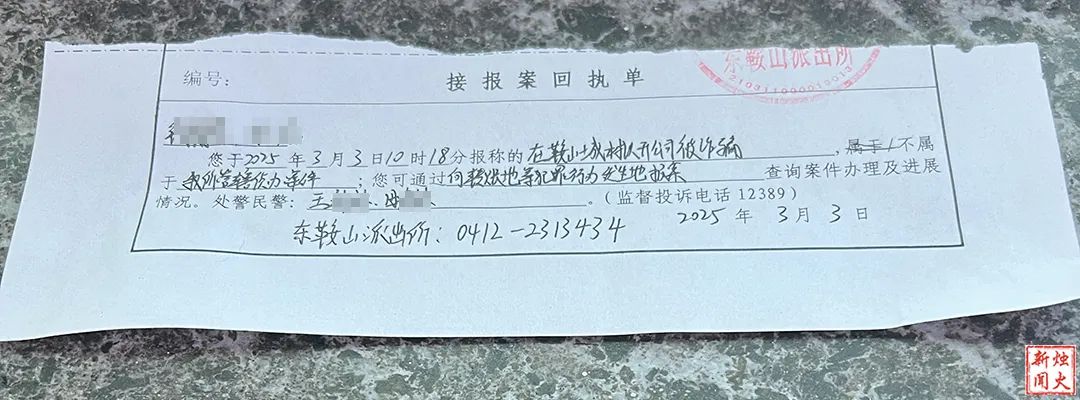 东鞍山派出所
2103110000013
编号:
接报案回执单
您于2025年3月3日10时18分报称的在鞍山城材开公司被诈骗,属于/不属
于我所管辖侦办案件;您可通过向接供地等犯罪行为发生地报案查询案件办理及进展
情况。处警民警:王(监督投诉电话12389)
2025年3月3日
东鞍山派出所:0412-2313434
烛火
新闻